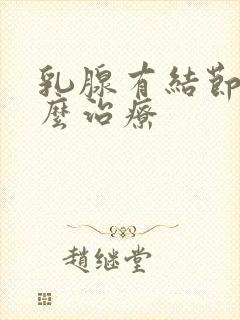 乳腺有結節
麼治療
趙继堂